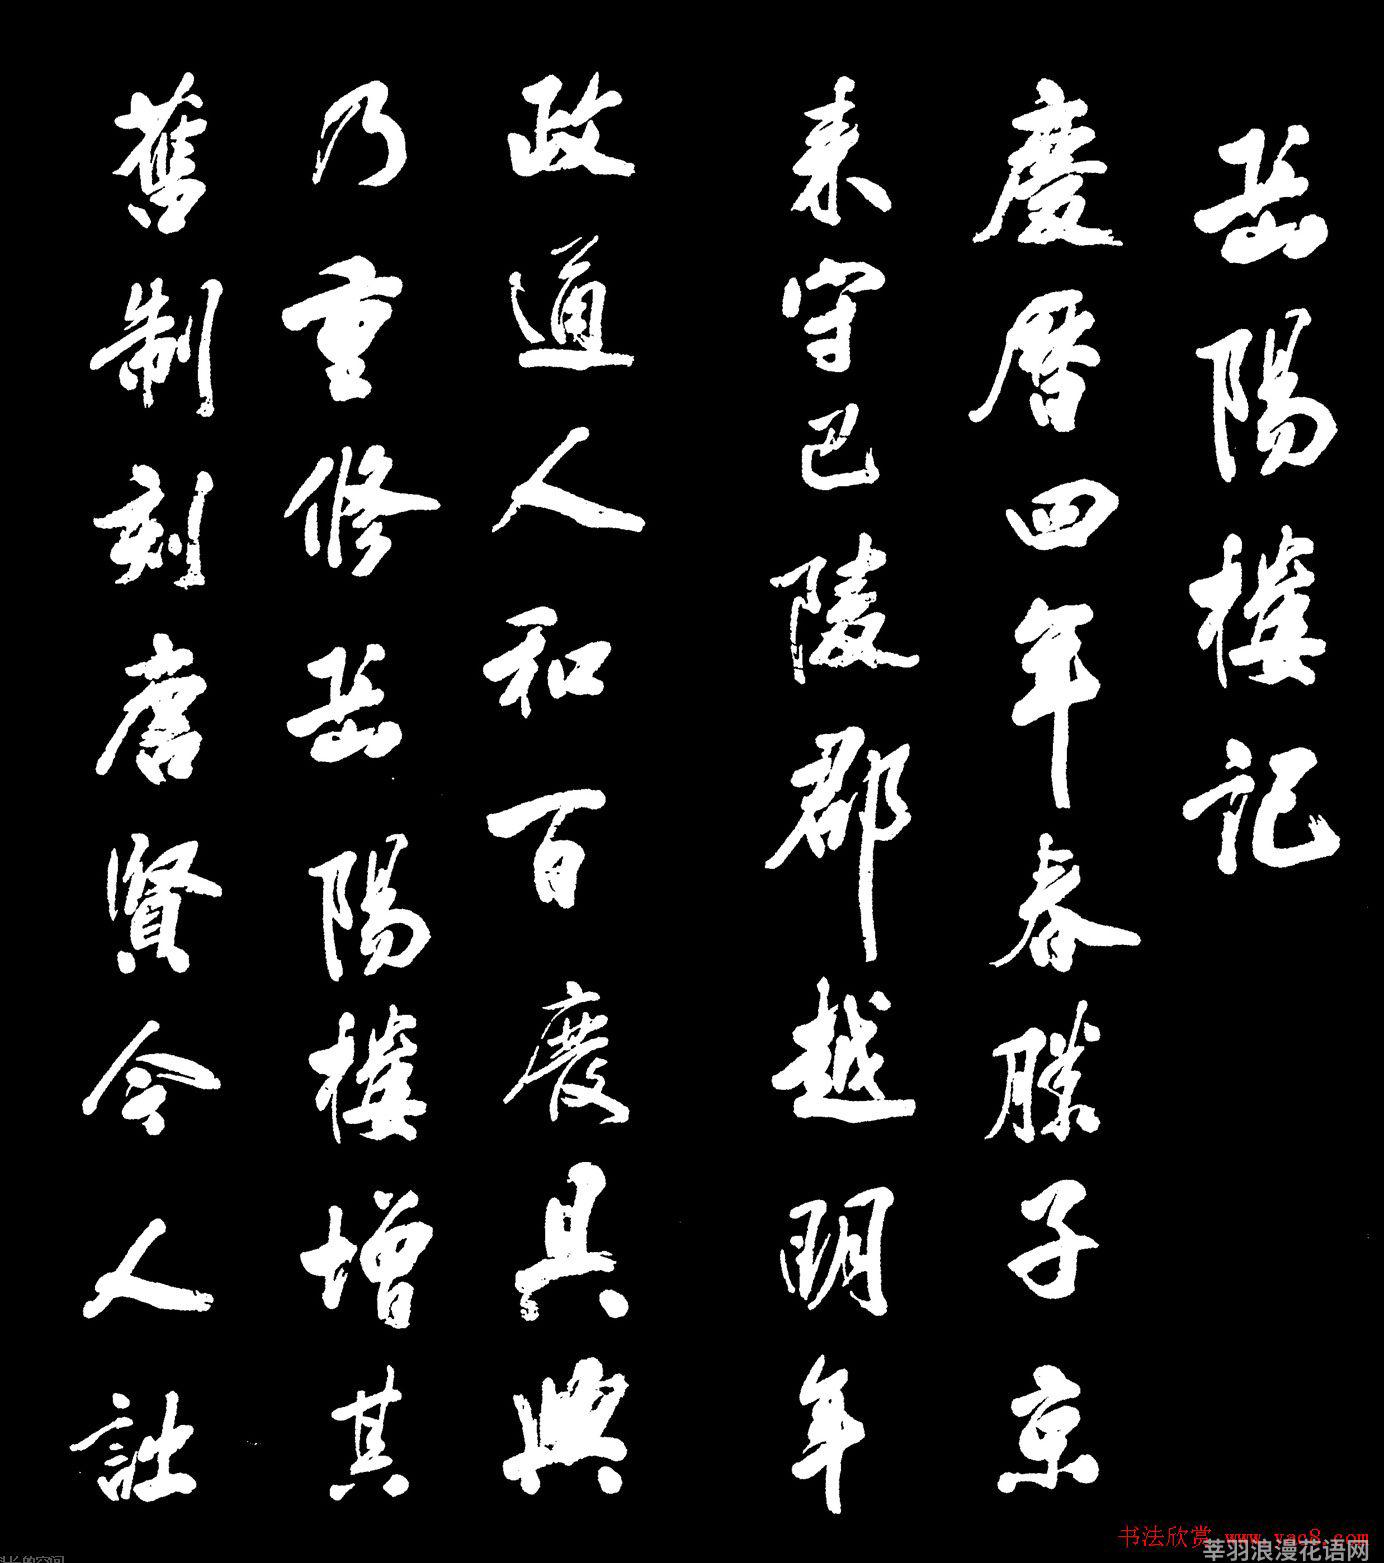 岳陽樓記
慶曆四年春滕子京
来守巴陵郡越明年
政通人和百廢具興
乃重修岳陽樓增其
舊制刻唐賢今人詩
书法欣赏 www.yac8.com
莘羽浪漫花语网